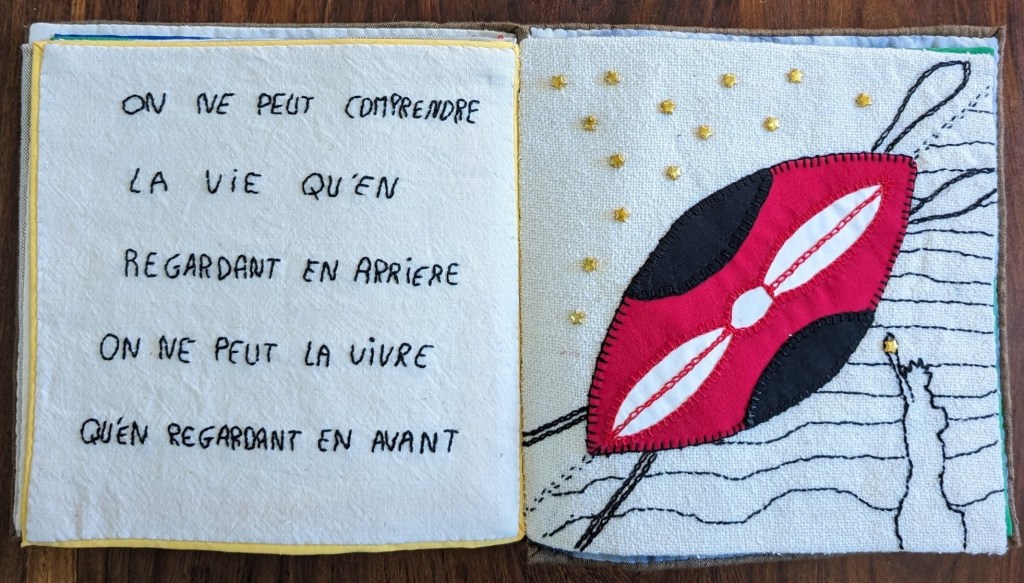 ON NE PEUT COMPRENDRE
LA ViE QU'EN
REGARDANT EN ARRiERE
ON NE PEUT LA ViVRE
QU'EN REGARDANT EN AVANT